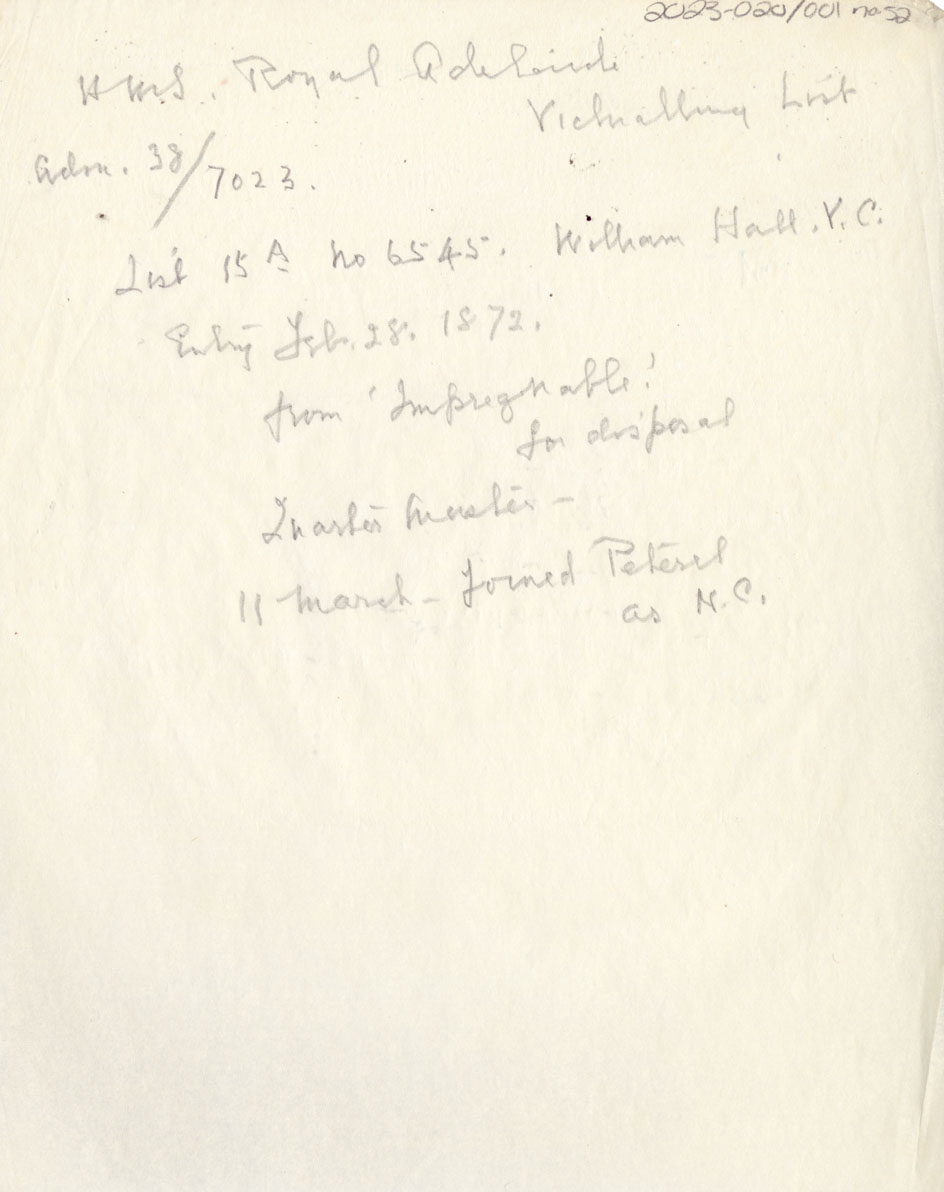 2023-020/001 no 52
HMS. Royal Adelaide
Victualling List
Adm. 38/7023.
List 15 A No 6545. William Hall. V.C.
Entry Feb. 28. 1872.
from 'Impregnable'
for disposal
Quarter Master -
11 March - Joined Peterel
as N.C.